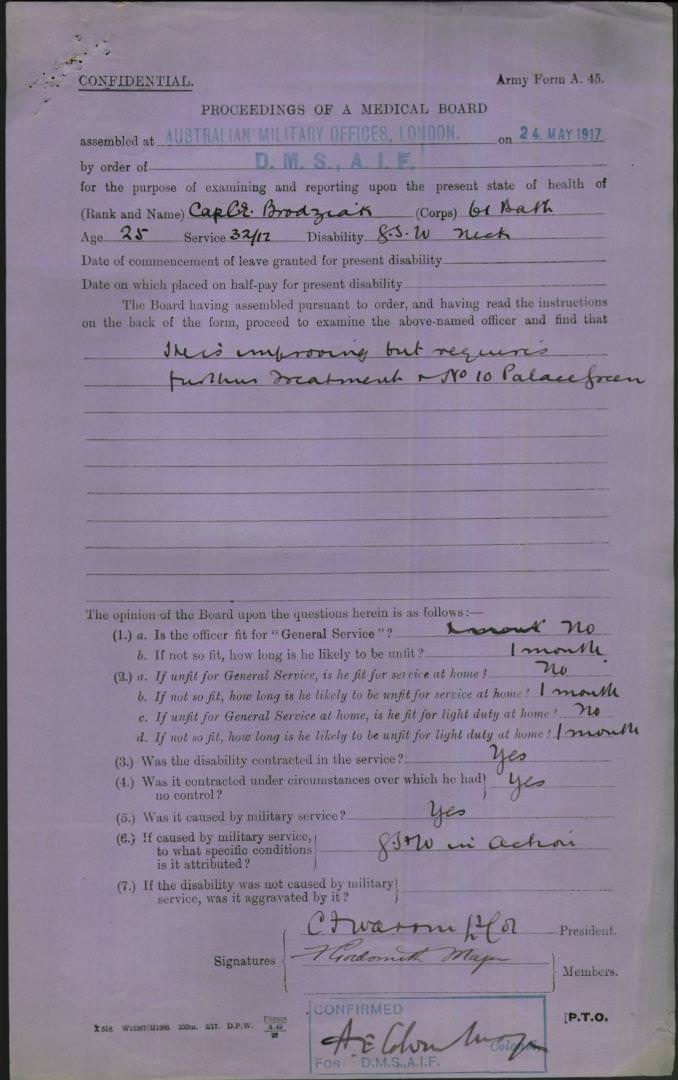 CONFIDENTIAL. Army Form A. 45.
PROCEEDINGS OF A MEDICAL BOARD
assembled at AUSTRALIAN MILITARY OFFICES, LONDON. on 24. MAY 1917
by order of D. M. S., A. I. F.
for the purpose of examining and reporting upon the present state of health of
(Rank and Name) Capt. Brodziak (Corps)
Age 25 Service 32/12 Disability G.S.W Neck
Date of commencement of leave granted for present disability
Date on which placed on half-pay for present disability
The Board having assembled pursuant to order, and having read the instructions
on the back of the form, proceed to examine the above-named officer and find that
He is improving but requires
further treatment No 10 Palace Green
The opinion of the Board upon the questions herein is as follows:—
(1.) a. Is the officer fit for "General Service"? No
b. If not so fit, how long is he likely to be unfit? 1 month
(2.) a. If unfit for General Service, is he fit for service at home? No
b. If not so fit, how long is he likely to be unfit for service at home? 1 month
c. If unfit for General Service at home, is he fit for light duty at home? No
d. If not so fit, how long is he likely to be unfit for light duty at home? 1 month
(3.) Was the disability contracted in the service? Yes
(4.) Was it contracted under circumstances over which he had
no control? Yes
(5.) Was it caused by military service? Yes
(6.) If caused by military service,
to what specific conditions G.S.W in action
is it attributed?
(7.) If the disability was not caused by military
service, was it aggravated by it?
Lt Col President.
Signatures Goldsmith Major
Members.
CONFIRMED
[P.T.O.
Colonel
FOR D.M.S., A.I.F.
D.P.W. Forms A.45